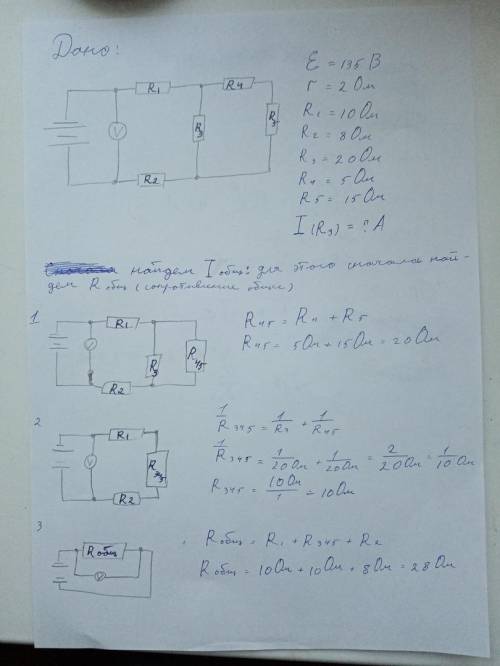 Дано:
R1 R4
V R3 R5
R2
Ɛ = 135 В
r = 2 Ом
R1 = 10 Ом
R2 = 8 Ом
R3 = 20 Ом
R4 = 5 Ом
R5 = 15 Ом
I(R3) = ? А
найдем I общ: для этого сначала най-
дем R общ (сопротивление общее)
1
R1
R3 R45
R2
R45 = R4 + R5
R45 = 5 Ом + 15 Ом = 20 Ом
2
R1
V R345
R2
1/R345 = 1/R3 + 1/R45
1/R345 = 1/20 Ом + 1/20 Ом = 2/20 Ом = 1/10 Ом
R345 = 10 Ом/1 = 10 Ом
3
R общ
V
R общ = R1 + R345 + R2
R общ = 10 Ом + 10 Ом + 8 Ом = 28 Ом